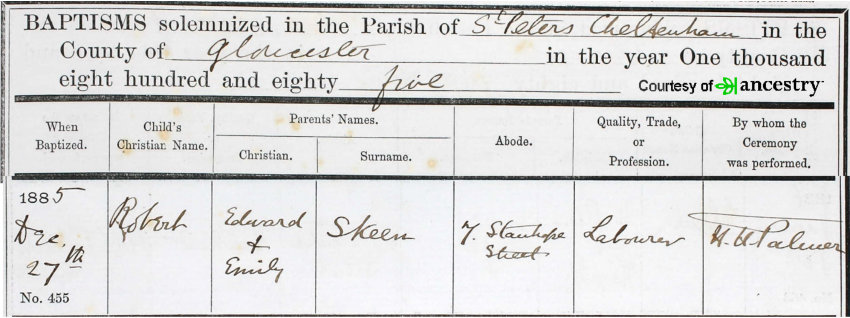 BAPTISMS solemnized in the Parish of St Peters Cheltenham in the
County of Gloucester in the year One thousand
eight hundred and eighty five
Courtesy of ancestry
When Baptized.
Child's Christian Name.
Parents' Names.
Christian.
Surname.
Abode.
Quality, Trade, or Profession.
By whom the Ceremony was performed.
1885
Dec
27th
No. 455
Robert
Edward
+
Emily
Skeen
7. Stanhope
Street
Labourer
H. H Palmer